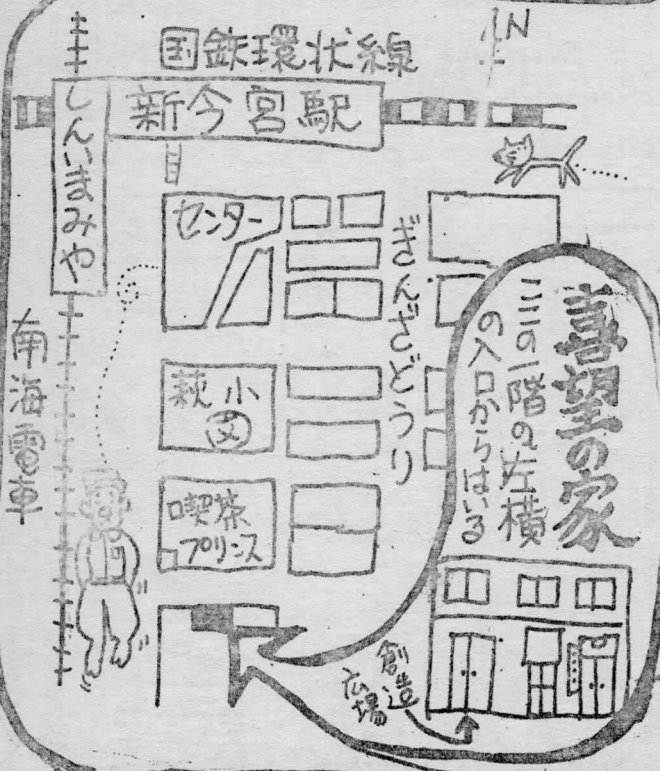 N
国鉄環状線
新今宮駅
しんいまみや
センター
ぎんざどうり
南海電車
萩小
文
喫茶
プリンス
喜望の家
ここの一階の左横
の入口からはいる
創造
広場